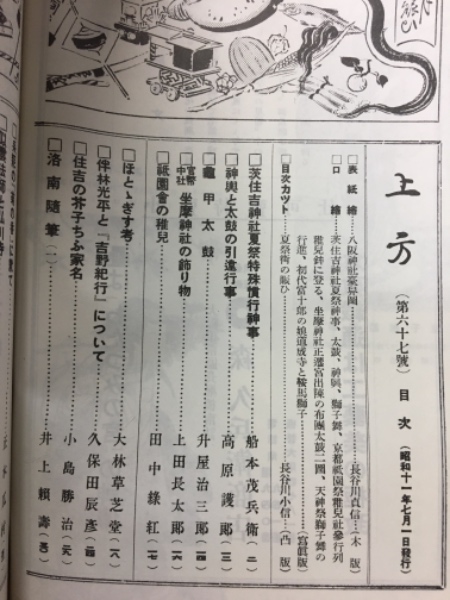 上方(第六十七號)目次(昭和十一年七月一日發行)
□表紙繪…八阪神社夜景圖…長谷川貞信…(木版)
□口繪…茨住吉神社夏祭神事、太鼓、神輿、獅子舞、京都祇園祭稚兒社參行列
稚兒鉾に登る、坐摩神社正遷宮出陳の布團太鼓二圖、天神祭獅子舞の
行進、初代富十郎の娘道成寺と鞍馬獅子…(寫眞版)
□目次カツト…夏祭街の賑ひ…長谷川小信…(凸版)
□茨住吉神社夏祭特殊慣行神事…船本茂兵衞…(二)
□神輿と太鼓の引違行事…高原護郎…(三)
□龜甲太鼓…升屋治三郎…(四)
□官幣中社 坐摩神社の飾り物…上田長太郎…(一四)
□祗園會の稚兒…田中綠紅…(一七)
□ほとゝぎす考…大林草芝堂…(一八)
□伴林光平と『吉野紀行』について…久保田辰彥…(二四)
□住吉の芥子ちふ家名…小島勝治…(二六)
□洛南隨筆(一)…井上賴壽…